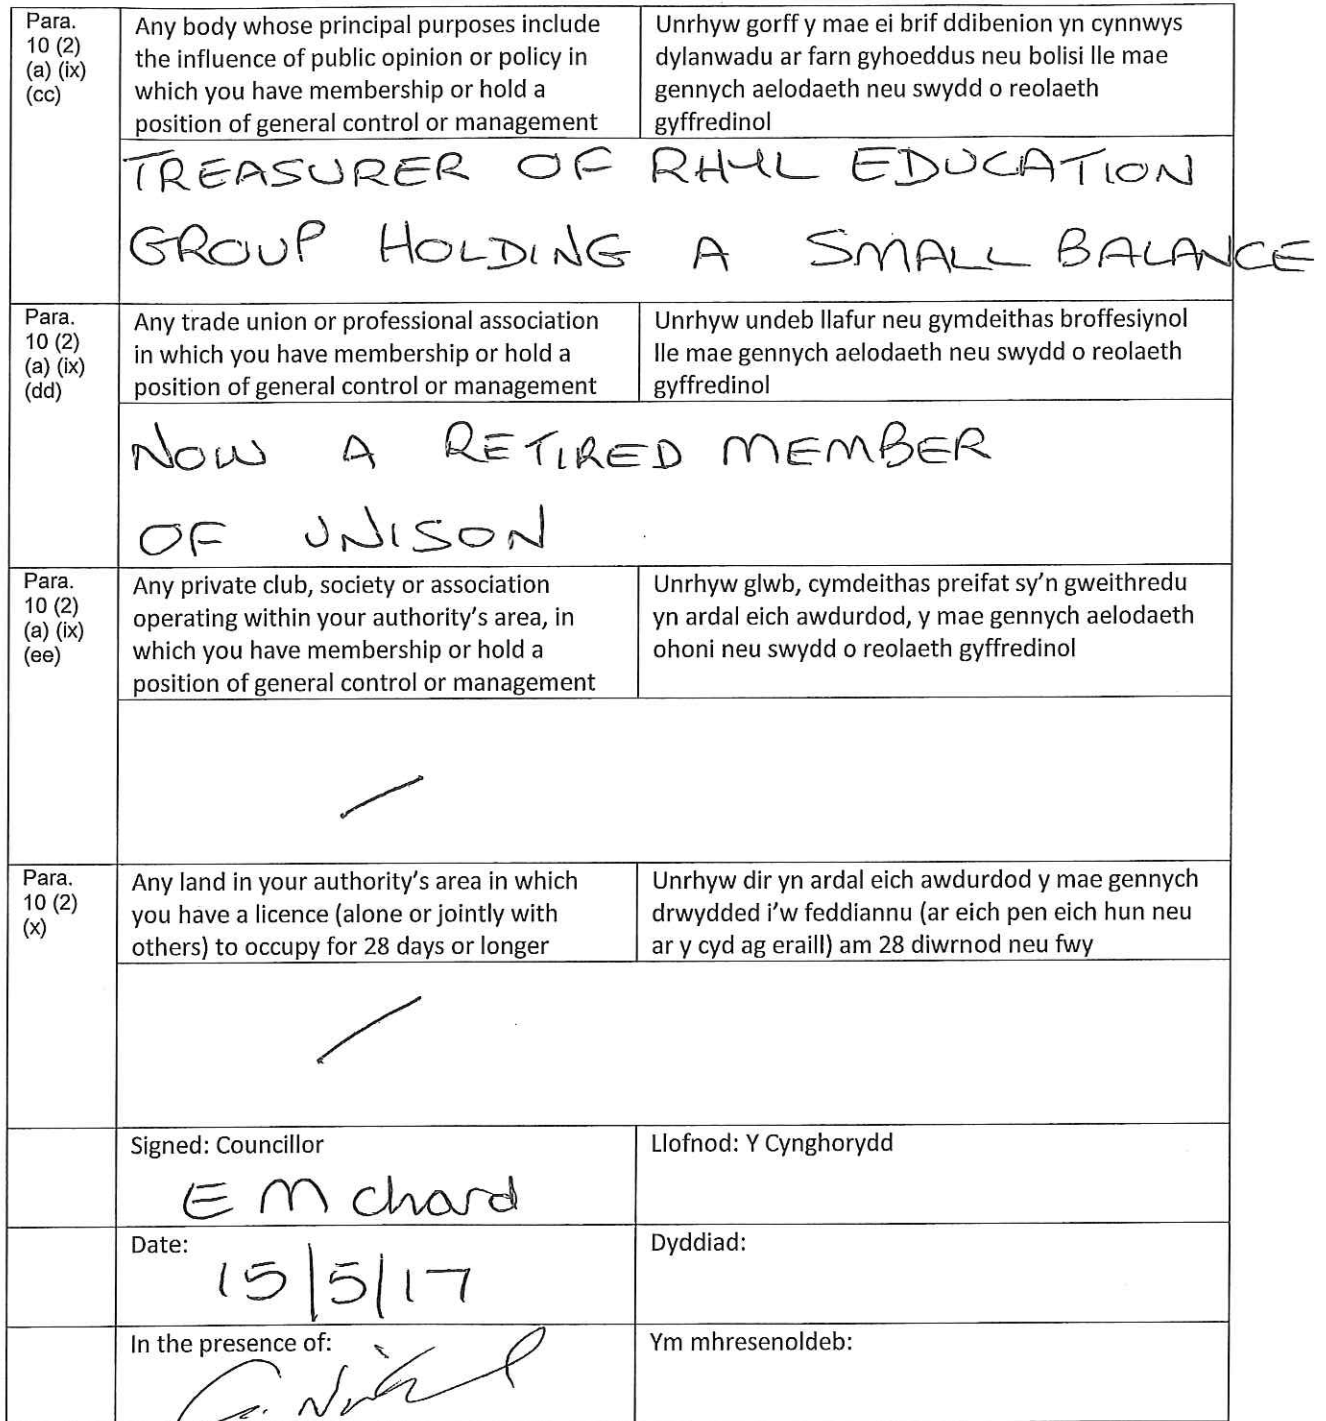 Para.
10 (2)
(a) (ix)
(cc)
Any body whose principal purposes include
the influence of public opinion or policy in
which you have membership or hold a
position of general control or management
Unrhyw gorff y mae ei brif ddibenion yn cynnwys
dylanwadu ar farn gyhoeddus neu bolisi lle mae
gennych aelodaeth neu swydd o reolaeth
gyffredinol
TREASURER OF RHYL EDUCATION
GROUP HOLDING A SMALL BALANCE
Para.
10 (2)
(a) (ix)
(dd)
Any trade union or professional association
in which you have membership or hold a
position of general control or management
Unrhyw undeb llafur neu gymdeithas broffesiynol
lle mae gennych aelodaeth neu swydd o reolaeth
gyffredinol
NOW A RETIRED MEMBER
OF UNISON
Para.
10 (2)
(a) (ix)
(ee)
Any private club, society or association
operating within your authority's area, in
which you have membership or hold a
position of general control or management
Unrhyw glwb, cymdeithas preifat sy'n gweithredu
yn ardal eich awdurdod, y mae gennych aelodaeth
ohoni neu swydd o reolaeth gyffredinol
Para.
10 (2)
(x)
Any land in your authority's area in which
you have a licence (alone or jointly with
others) to occupy for 28 days or longer
Unrhyw dir yn ardal eich awdurdod y mae gennych
drwydded i'w feddiannu (ar eich pen eich hun neu
ar y cyd ag eraill) am 28 diwrnod neu fwy
Signed: Councillor
Llofnod: Y Cynghorydd
E M Chard
Date:
Dyddiad:
15/5/17
In the presence of:
Ym mhresenoldeb: